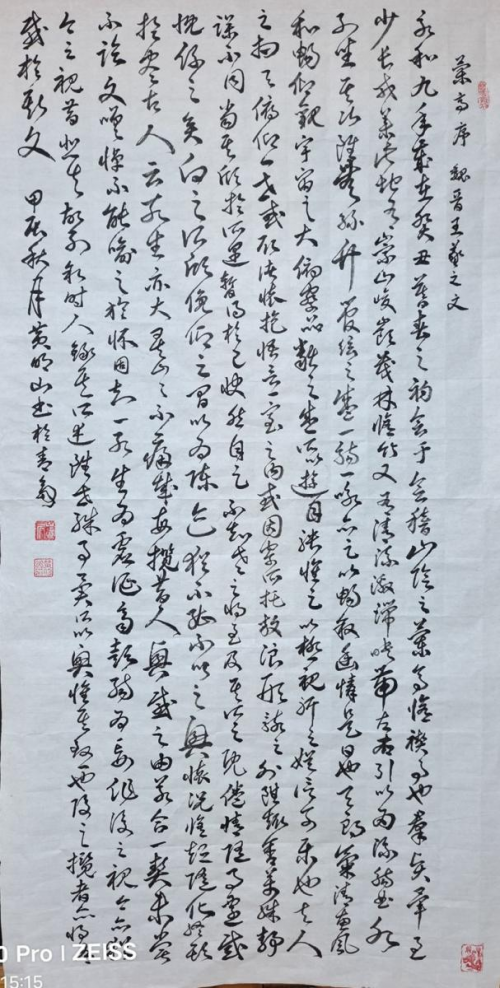 蘭亭序 魏晋王羲之文
永和九年歲在癸丑暮春之初會于會稽山陰之蘭亭脩禊事也羣賢畢至
少長咸集此地有崇山峻嶺茂林脩竹又有清流激湍暎帶左右引以為流觴曲水
列坐其次雖無絲竹管弦之盛一觴一詠亦足以暢敘幽情是日也天朗氣清惠風
和暢仰觀宇宙之大俯察品類之盛所以遊目騁懷足以極視聽之娛信可樂也夫人
之相與俯仰一世或取諸懷抱悟言一室之內或因寄所托放浪形骸之外雖趣舍萬殊靜
躁不同當其欣於所遇暫得於己快然自足不知老之將至及其所之既倦情隨事遷感
慨係之矣向之所欣俛仰之間以為陳迹猶不能不以之興懷況脩短隨化終期
於盡古人云死生亦大矣豈不痛哉每攬昔人興感之由若合一契未嘗
不臨文嗟悼不能喻之於懷固知一死生為虛誕齊彭殤為妄作後之視今亦猶
今之視昔悲夫故列敘時人錄其所述雖世殊事異所以興懷其致一也後之攬者亦將有
感於斯文 甲辰秋月黃明山書於青島
0 Pro | ZEISS
15:15